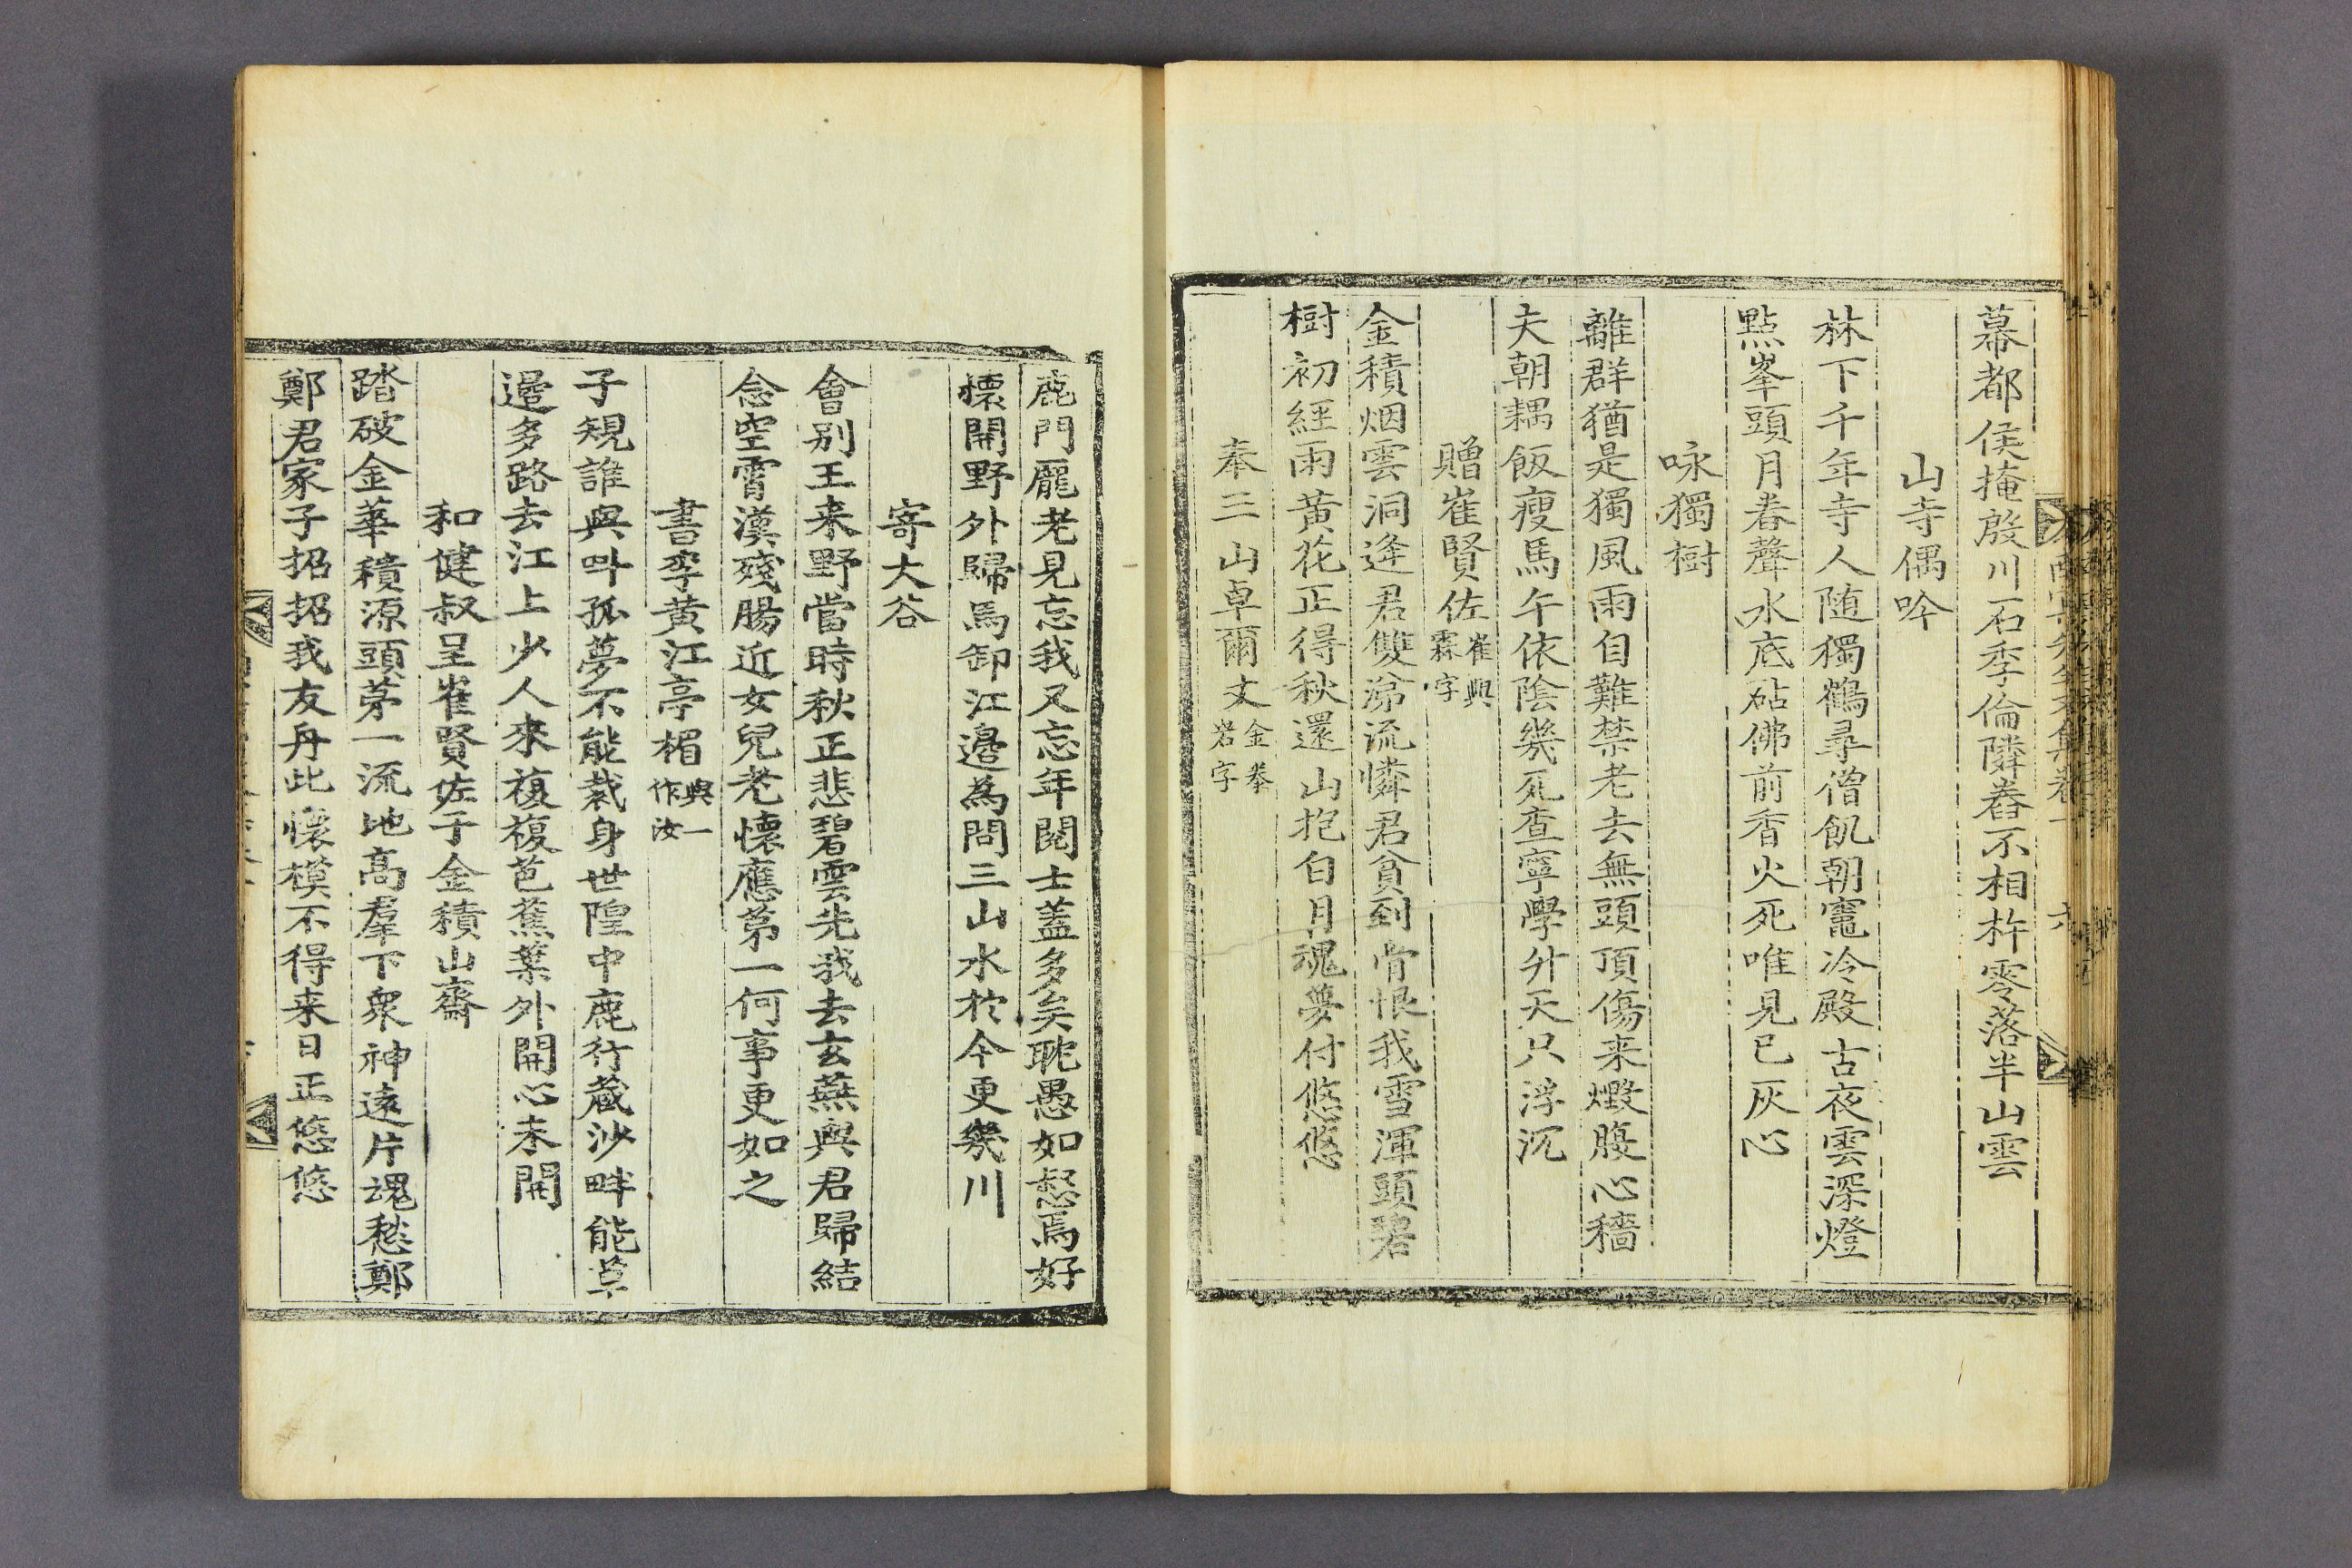 幕都侯掩殷川石季倫隣舂不相杵零落半山雲
山寺偶吟
林下千年寺人随獨鶴尋僧飢朝竈冷殿古夜雲深燈
點峯頭月舂聲水底砧佛前香火死唯見已灰心
咏獨樹
離群猶是獨風雨自難禁老去無頭頂傷来燬腹心穡
夫朝耦飯瘦馬午依陰幾死查寧學升天只浮沉
贈崔賢佐崔興霖字
金積烟雲洞逢君雙涕流憐君貧到骨恨我雪渾頭碧
樹初經雨黄花正得秋還山抱白月魂夢付悠悠
奉三山卓爾丈
鹿門龐老見忘我又忘年閱士盖多矣耽愚如惄焉好
懷開野外歸馬卸江邉為問三山水於今更幾川
寄大谷
會别王来野當時秋正悲碧雲先我去玄燕與君歸結
念空霄漢殘膓近女兒老懷應苐一何事更如之
書李黄江亭楣與一作汝
子規誰與呌孤夢不能裁身世隍中鹿行蔵沙畔能草
邉多路去江上少人來複複芭蕉葉外開心未開
和健叔呈崔賢佐于金積山齋
踏破金華積源頭苐一流地高羣下衆神遠片魂愁鄭
鄭君家子招招我友舟此懷模不得来日正悠悠